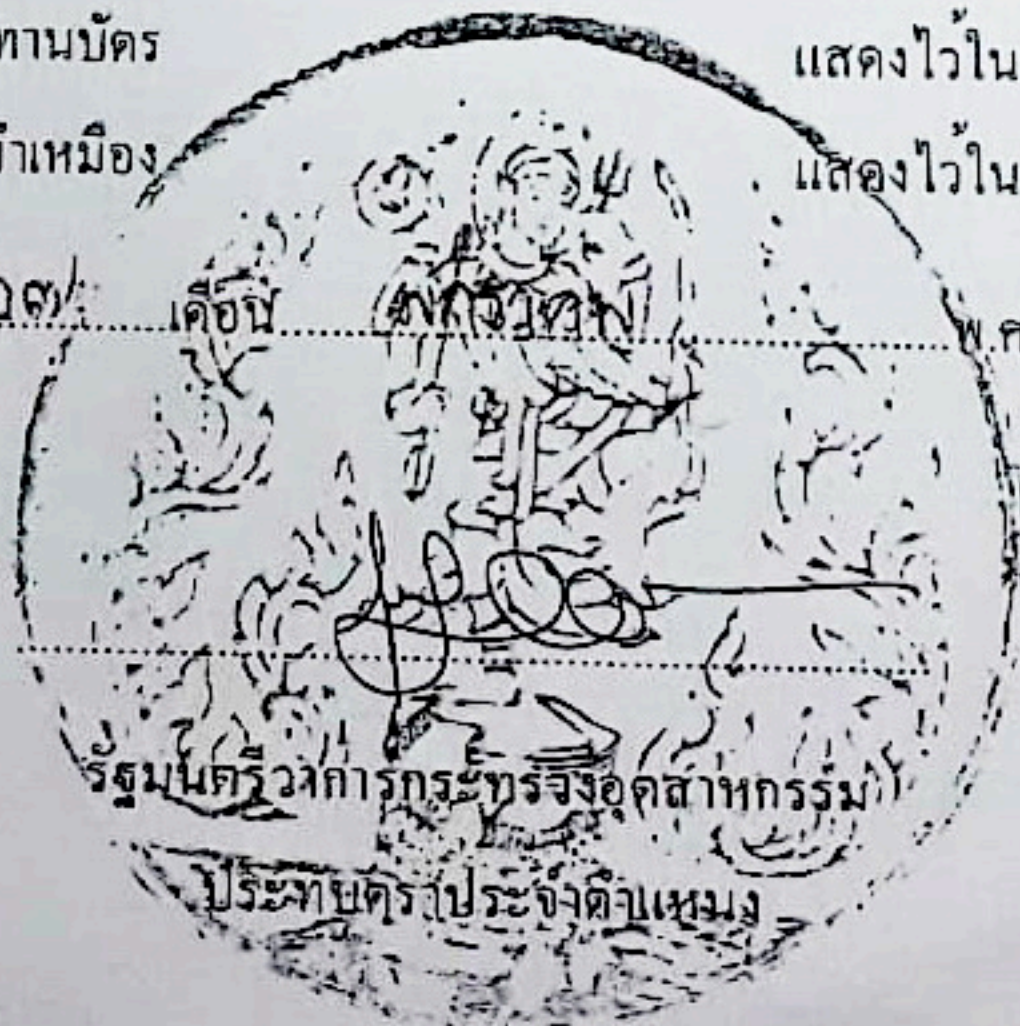 ทานบัตร แสดงไว้ใน
ทำเหมือง แสดงไว้ใน
๑๗ เดือน มกราคม พ.ศ
รัฐมนตรีว่าการกระทรวงอุตสาหกรรม
ประทับตราประจำตำแหน่ง